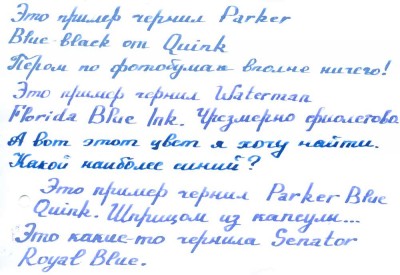 Это пример чернил Parker
Blue-black от Quink
Пером по фотобумаге вполне ничего!
Это пример чернил Waterman
Florida Blue Ink. Чрезмерно фиолетово.
А вот этот цвет я хочу найти.
Какой наиболее синий?
Это пример чернил Parker Blue
Quink. Шприцом из капсулы...
Это какие-то чернила Senator
Royal Blue.